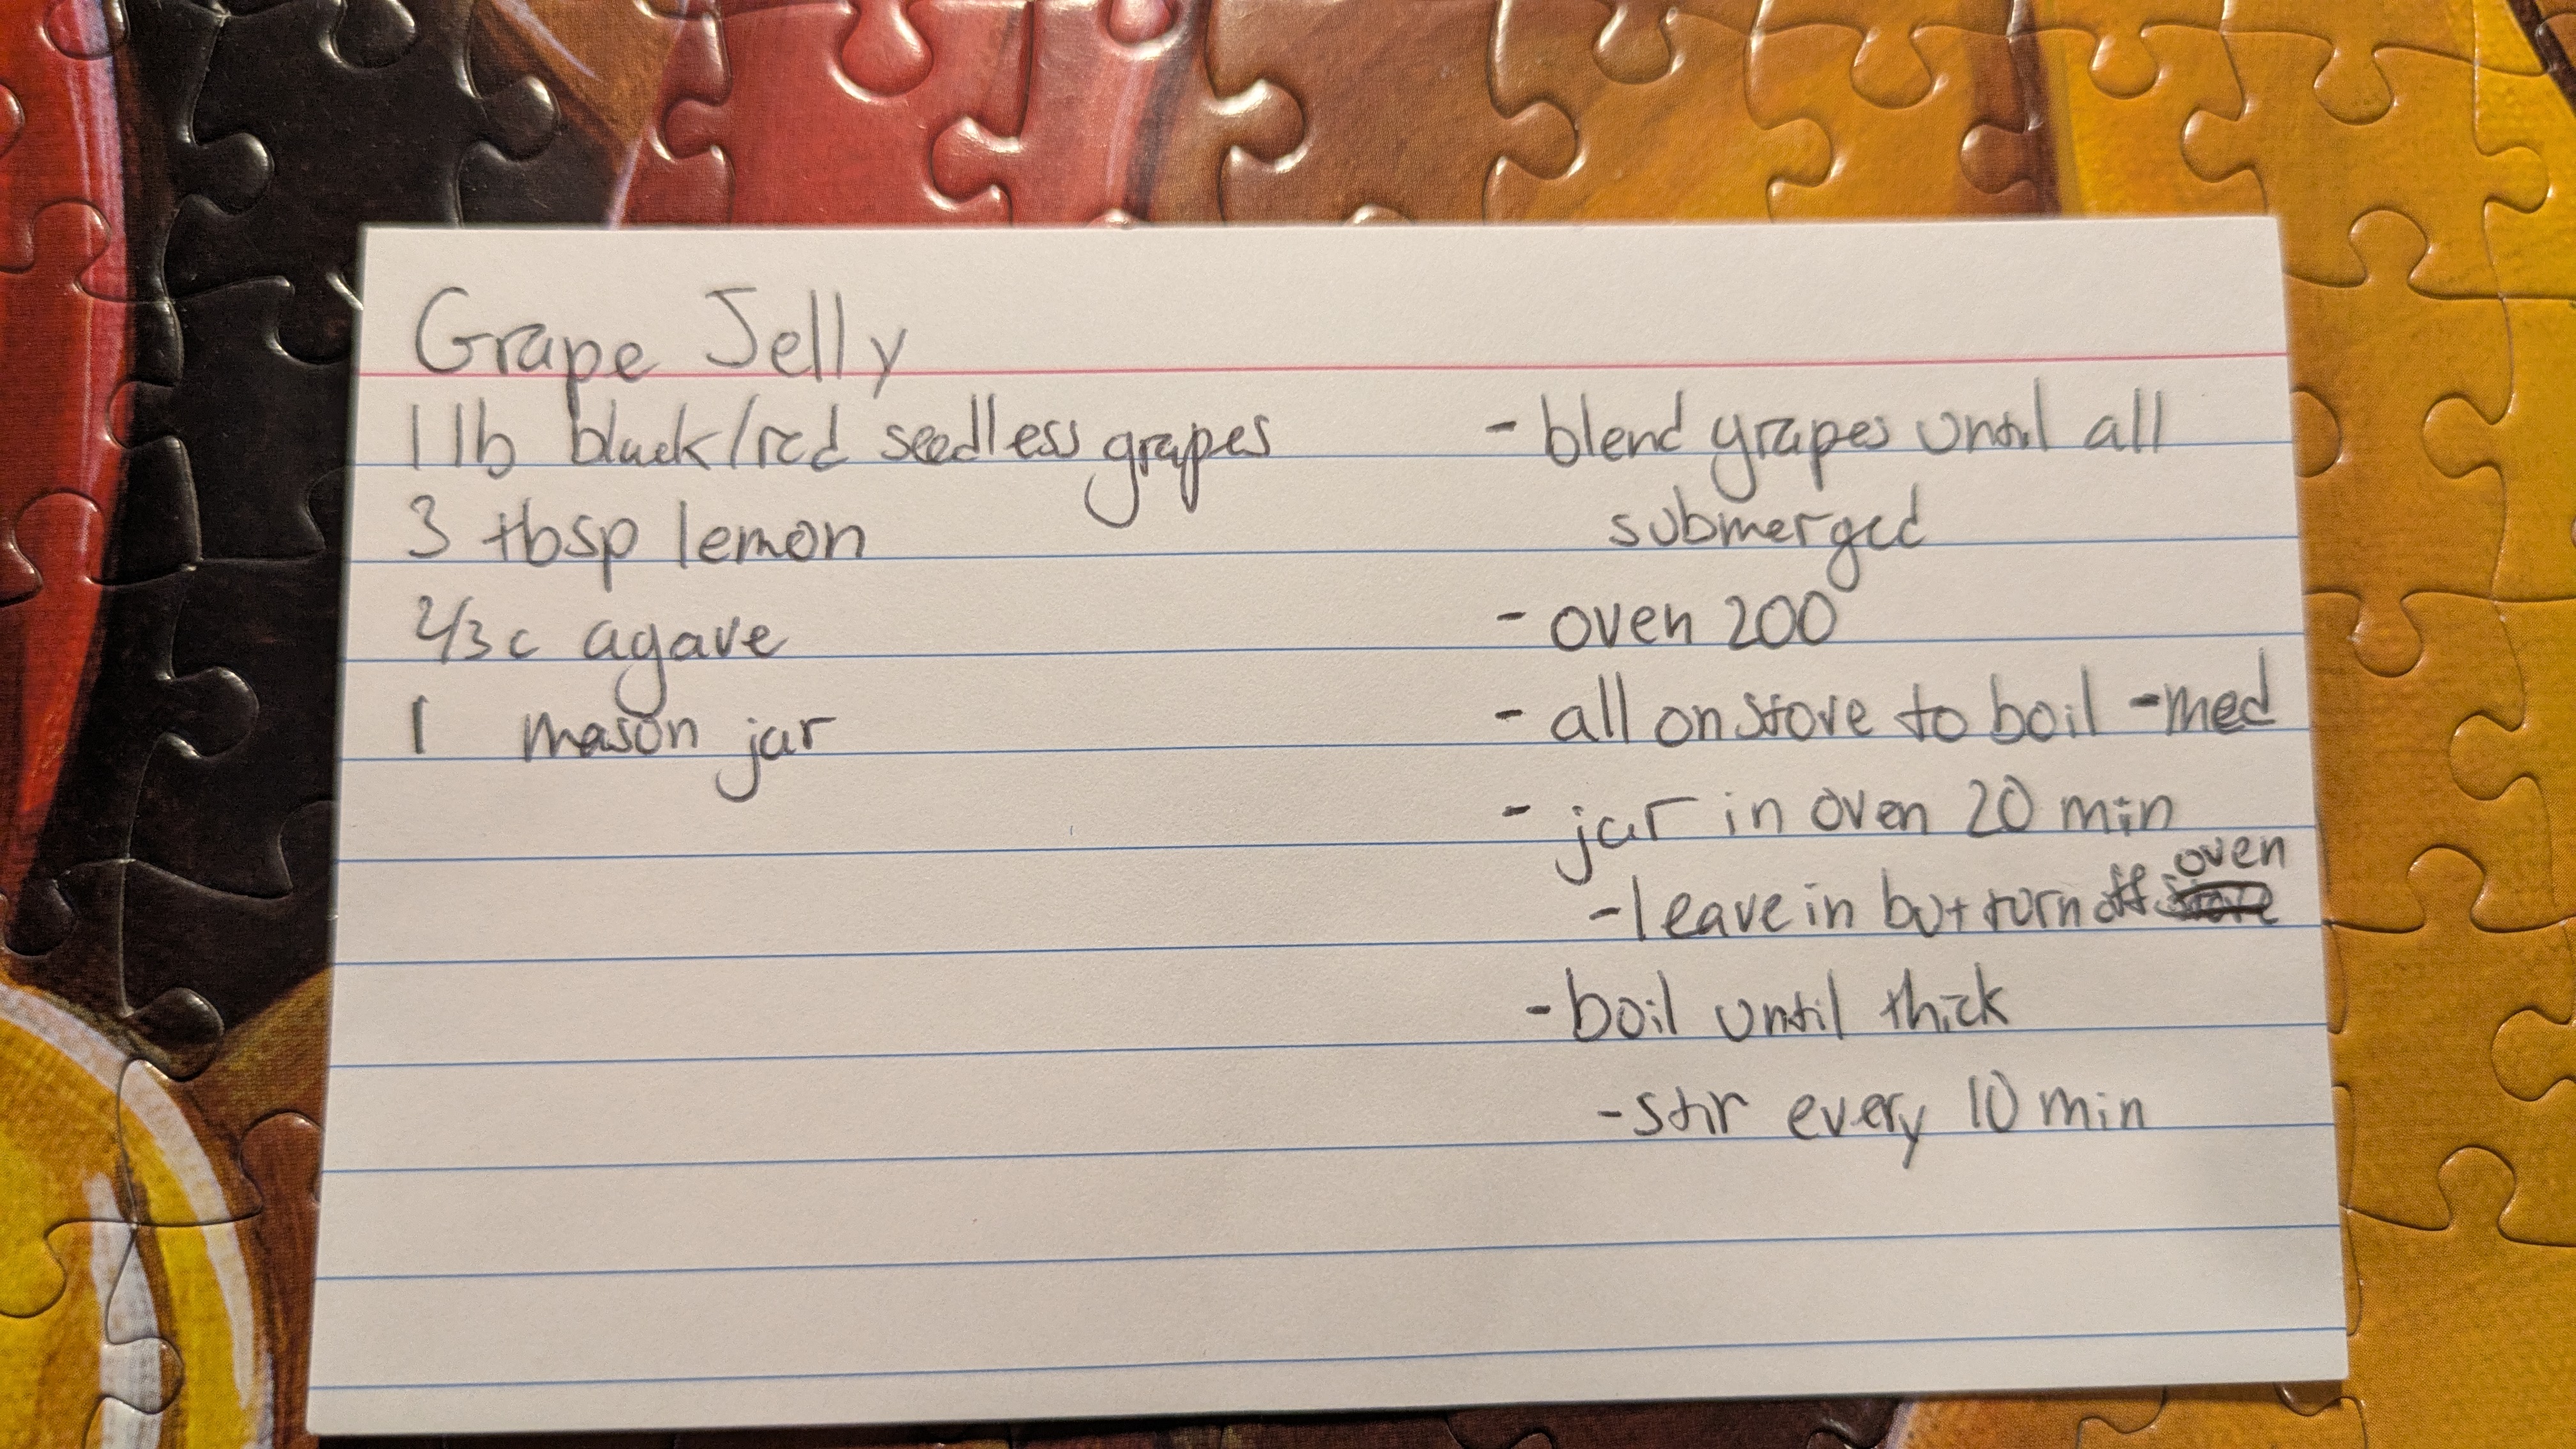 Grape Jelly
1 lb black/red seedless grapes
3 tbsp lemon
2/3 c agave
1 mason jar
- blend grapes until all
submerged
- oven 200
- all on stove to boil - med
- jar in oven 20 min
- leave in but turn off oven
- boil until thick
- stir every 10 min